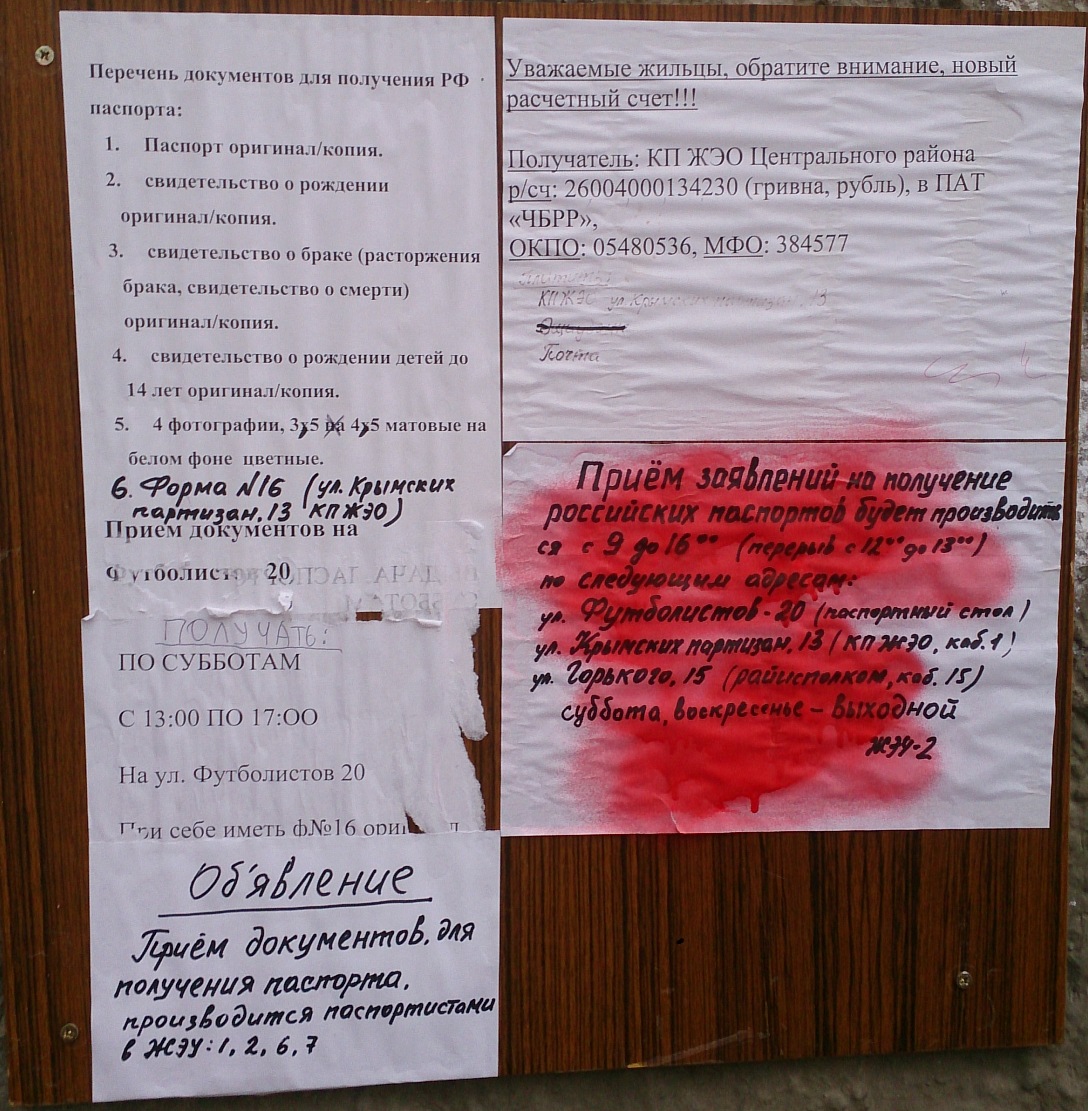 Перечень документов для получения РФ
паспорта:
1. Паспорт оригинал/копия.
2. свидетельство о рождении
оригинал/копия.
3. свидетельство о браке (расторжения
брака, свидетельство о смерти)
оригинал/копия.
4. свидетельство о рождении детей до
14 лет оригинал/копия.
5. 4 фотографии, 3х5 4х5 матовые на
белом фоне цветные.
6. Форма №16 (ул. Крымских
партизан, 13 КП ЖЭО)
Прием документов на
Футболистов 20
ПОЛУЧАТЬ:
ПО СУББОТАМ
С 13:00 ПО 17:ОО
На ул. Футболистов 20
себе иметь ф№16
Об'явление
Приём документов, для
получения паспорта,
производится паспортистами
в ЖЭУ: 1, 2, 6, 7
Уважаемые жильцы, обратите внимание, новый
расчетный счет!!!
Получатель: КП ЖЭО Центрального района
р/сч: 26004000134230 (гривна, рубль), в ПАТ
«ЧБРР»,
ОКПО: 05480536, МФО: 384577
КП ЖЭО ул. 13
Почта
Приём заявлений на получение
российских паспортов будет производить
ся с 9 до 16 ⁰⁰ (перерыв с 12⁰⁰ до 13⁰⁰)
по следующим адресам:
ул. Футболистов - 20 (паспортный стол)
ул. Крымских партизан 13 (КП ЖЭО, каб. 7)
ул. Горького, 15 (райисполком, каб. 15)
суббота, воскресенье - выходной
ЖЭУ-2